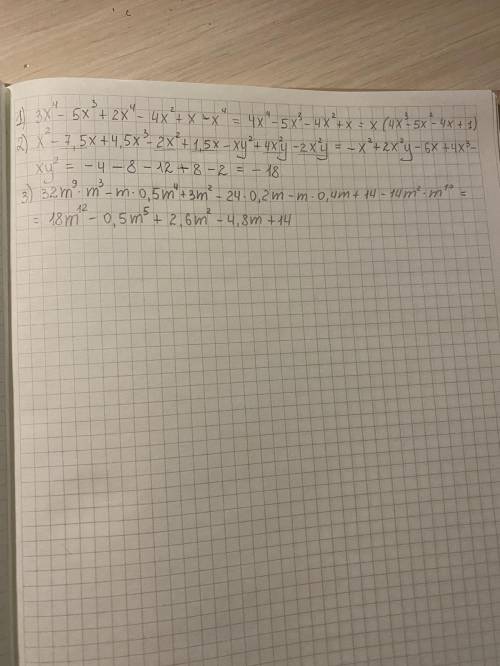 1) 3x⁴ - 5x³ + 2x⁴ - 4x² + x - x⁴ = 4x⁴ - 5x³ - 4x² + x = x(4x³ - 5x² - 4x + 1)
2) x² - 7,5x + 4,5x³ - 2x² + 1,5x - xy² + 4x²y - 2x²y = -x² + 2x²y - 6x + 4x³ -
xy² = -4 - 8 - 12 + 8 - 2 = -18
3) 32m⁹·m³ - m·0,5m⁴ + 3m² - 24·0,2m - m·0,4m + 14 - 14m²·m¹⁰ =
= 18m¹² - 0,5m⁵ + 2,6m² - 4,8m + 14